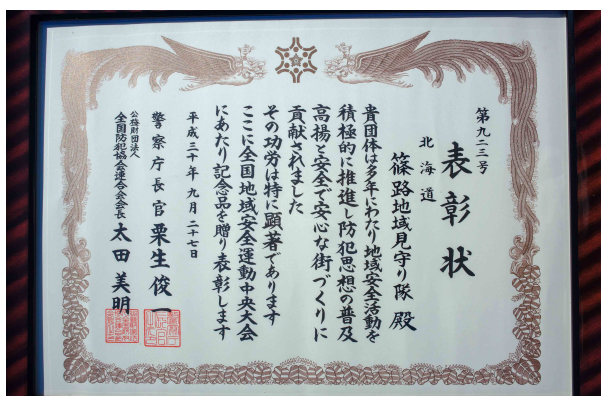 第九二三号
表彰状
北海道
篠路地域見守り隊 殿
貴団体は多年にわたり地域安全活動を
積極的に推進し防犯思想の普及
高揚と安全で安心な街づくりに
貢献されました
その功労は特に顕著であります
ここに全国地域安全運動中央大会
にあたり記念品を贈り表彰します
平成三十年九月二十七日
警察庁長官 栗生俊一
公益財団法人
全国防犯協会連合会会長 太田美明